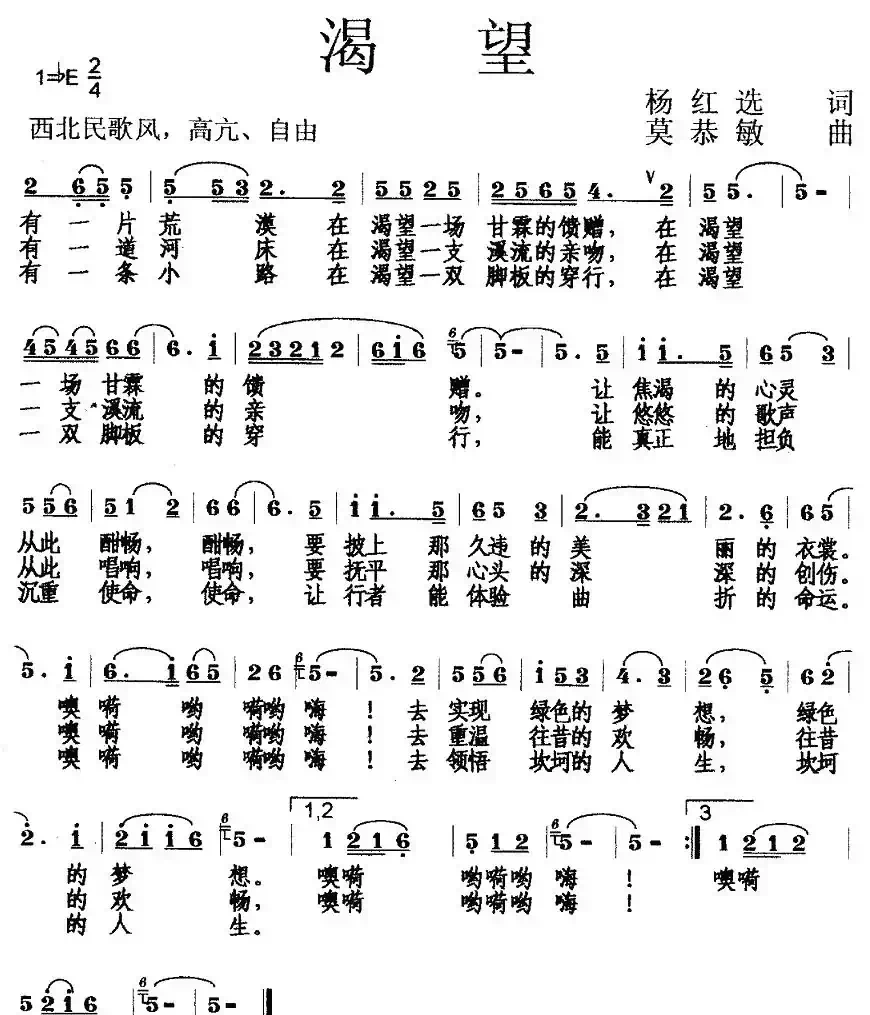 渴 望
1=♭E 2/4
杨 红 选 词
西北民歌风，高亢、自由
莫 恭 敏 曲
2 6 5 5 | 5 5 3 2. 2 | 5 5 2 5 | 2 5 6 5 4. 2 | 5 5. | 5 - |
有 一 片 荒 漠 在 渴望一场 甘霖的馈赠，在 渴望
有 一 道 河 床 在 渴望一支 溪流的亲吻，在 渴望
有 一 条 小 路 在 渴望一双 脚板的穿行，在 渴望
4 5 4 5 6 6 | 6. i | 2 3 2 1 2 | 6 i 6 | 5 | 5 - | 5. 5 | i i. 5 | 6 5 3 |
一 场 甘霖 的 馈 赠。 让 焦渴 的 心灵
一 支 溪流 的 亲 吻， 让 悠悠 的 歌声
一 双 脚板 的 穿 行， 能 真正 地 担负
5 5 6 | 5 1 2 | 6 6 | 6. 5 | i i. 5 | 6 5 3 | 2. 3 2 1 | 2. 6 | 6 5 |
从此 酣畅，酣畅， 要 披上 那 久违 的 美 丽 的 衣裳。
从此 唱响，唱响， 要 抚平 那 心头 的 深 深 的 创伤。
沉重 使命，使命， 让 行者 能 体验 曲 折 的 命运。
5. i | 6. 1 6 5 | 2 6 | 6 5 - | 5. 2 | 5 5 6 | i 5 3 | 4. 3 | 2 6 5 | 6 2 |
噢 嗬 哟 嗬哟 嗨 ！ 去 实现 绿色的 梦 想， 绿色
噢 嗬 哟 嗬哟 嗨 ！ 去 重温 往昔的 欢 畅， 往昔
噢 嗬 哟 嗬哟 嗨 ！ 去 领悟 坎坷的 人 生， 坎坷
1,2 3
2. i | 2 i i 6 | 6 5 - | 1 2 1 6 | 5 1 2 | 6 5 - | 5 - :| 1 2 1 2 |
的 梦 想。 噢嗬 哟嗬哟 嗨 ！ 噢嗬
的 欢 畅， 噢嗬 哟嗬哟 嗨 ！
的 人 生。
5 2 i 6 | 6 5 - | 5 - ‖